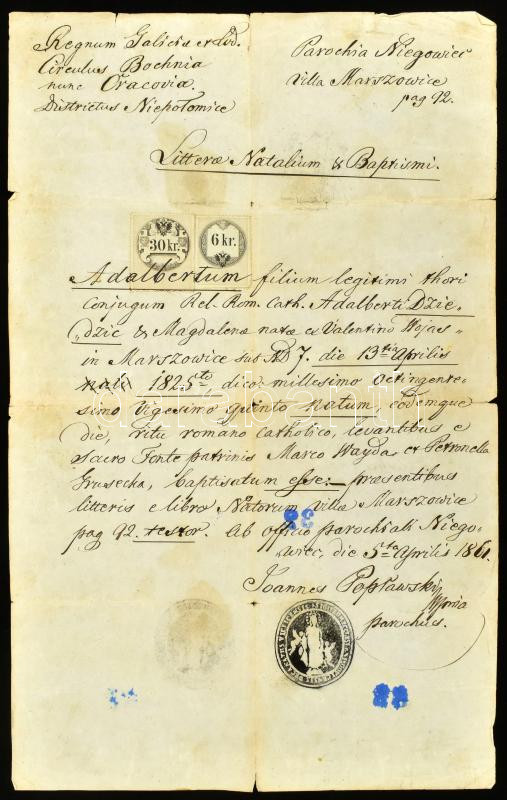 Regnum Galiciæ et Lod.
Circulus Bochnia
nunc Cracoviæ.
Districtus Niepołomice
Parochia Niegowiec
Villa Marszowice
pag 92.
Litteræ Natalium & Baptismi.
30 kr.
6 kr.
Adalbertum filium legitimi thori
Conjugum Rel. Rom. Cath. Adalberti Dzie-
„dzic & Magdalenæ natæ ex Valentino Wojas„
in Marszowice sub ND 7. die 13tia Aprilis
1825to, dico: millesimo octingente-
simo Vigesimo quinto natum, eodemque
die, ritu romano catholico, levantibus e
Sacro Fonte patrinis Marco Wayda et Petronella
Grusecka, baptisatum esse:_ præsentibus
litteris e libro Natorum Villæ Marszowice
pag 92. testor. Ab officio parochiali Niego-
„wiec, die 5ta Aprilis 1861.
Joannes Popławski
parochus.
38
darabanth